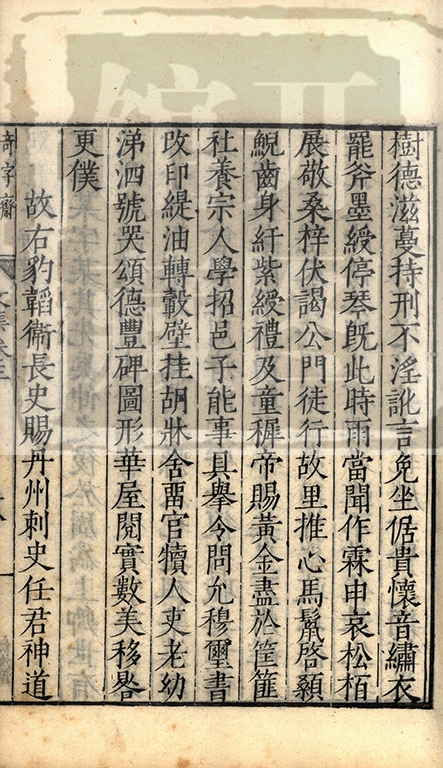 樹德滋蔓持刑不淫訛言免坐倨貴懷音繡衣
罷斧墨綬停琴旣此時雨當聞作霖申哀松栢
展敬桑梓伏謁公門徒行故里推心馬鬣啓顙
鯢齒身紆紫綬禮及童穉帝賜黃金盡於筐篚
社養宗人學招邑子能事具擧令問允穆璽書
改印緹油轉轂壁挂胡牀舍畱官犢人吏老幼
涕泗號哭頌德豐碑圖形華屋閱實數美移晷
更僕
故右豹韜衞長史賜丹州刺史任君神道
奇字齋
文集卷三